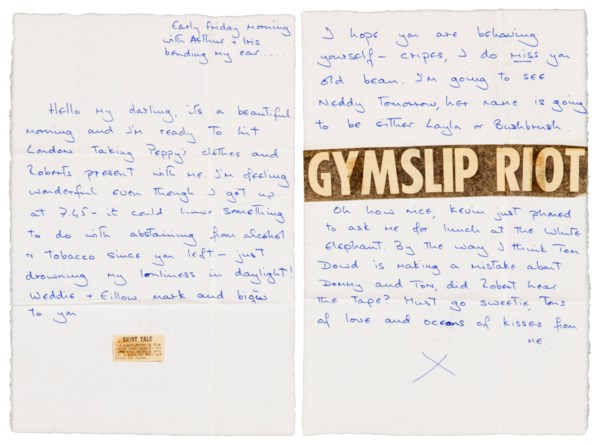 Early Friday Morning
with Arthur + Iris
bending my ear.....
Hello my darling, its a beautiful
morning and I'm ready to hit
London Taking Peppy's clothes and
Roberts present with me. I'm feeling
wonderful even though I got up
at 7.45 - it could have something
to do with abstaining from alcohol
+ tobacco since you left - just
drowning my lonliness in daylight!
Weddie + Eillow mark and
to you
SHIRT TALE
I hope you are behaving
yourself - cripes, I do miss you
old bean. I'm going to see
Neddy Tomorrow, her name is going
to be either Layla or Bushbrush.
GYMSLIP RIOT
Oh how nice, Kevin just phoned
to ask me for lunch at the white
elephant. By the way I think Tom
Dowd is making a mistake about
Dommy and Tom, did Robert hear
the Tape? Must go sweetie, Tons
of love and oceans of kisses from
me.
X